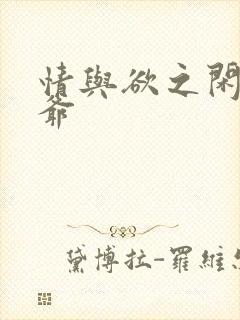 情與欲之閑
爺
黛博拉-羅維